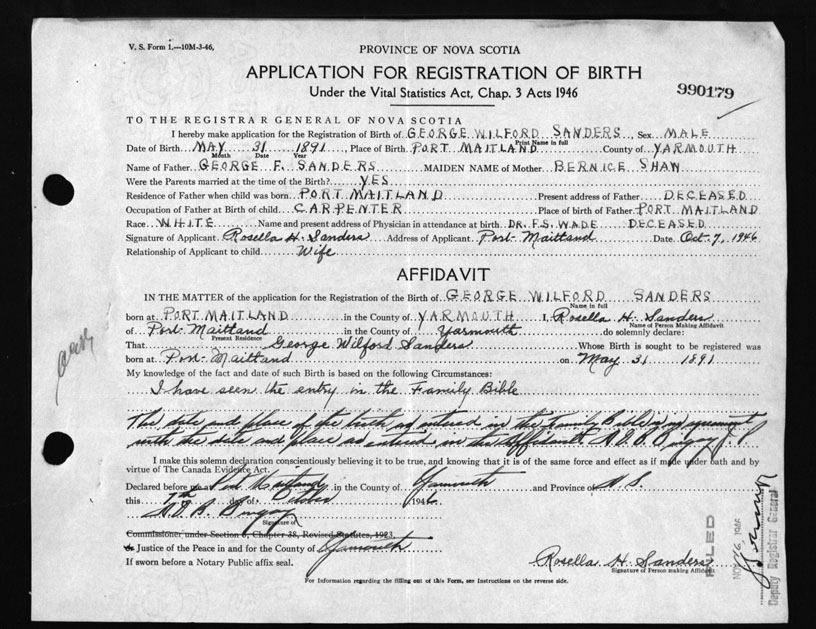 V. S. Form 1.—10M-3-46,
PROVINCE OF NOVA SCOTIA
APPLICATION FOR REGISTRATION OF BIRTH
990179
Under the Vital Statistics Act, Chap. 3 Acts 1946
TO THE REGISTRAR GENERAL OF NOVA SCOTIA
I hereby make application for the Registration of Birth of GEORGE WILFORD SANDERS, Sex MALE
Print Name in full
Date of Birth MAY 31 1891, Place of Birth PORT MAITLAND County of YARMOUTH
Month Date Year
Name of Father GEORGE F. SANDERS MAIDEN NAME of Mother BERNICE SHAW
Were the Parents married at the time of the Birth? YES
Residence of Father when child was born PORT MAITLAND Present address of Father DECEASED
Occupation of Father at Birth of child CARPENTER Place of birth of Father PORT MAITLAND
Race WHITE Name and present address of Physician in attendance at birth DR. F.S. WADE DECEASED
Signature of Applicant Rosella H. Sanders Address of Applicant Port Maitland Date Oct 7, 1946
Relationship of Applicant to child Wife
AFFIDAVIT
IN THE MATTER of the application for the Registration of the Birth of GEORGE WILFORD SANDERS
Name in full
born at PORT MAITLAND in the County of YARMOUTH I, Rosella H. Sanders
Name of Person Making Affidavit
of Port Maitland in the County of Yarmouth do solemnly declare:
Present Residence
That George Wilford Sanders Whose Birth is sought to be registered was
born at Port Maitland on May 31 1891
My knowledge of the fact and date of such Birth is based on the following Circumstances:
I have seen the entry in the Family Bible
The date and place of the birth as entered in the Family Bible is in agreement
with the date and place as entered in the Affidavit J. P.
I make this solemn declaration conscientiously believing it to be true, and knowing that it is of the same force and effect as if made under oath and by
virtue of The Canada Evidence Act.
Declared before me at Port Maitland in the County of Yarmouth and Province of N. S.
this 7th day of October 1946
Signature of
Commissioner under Section 6, Chapter 38, Revised Statutes, 1923.
or Justice of the Peace in and for the County of Yarmouth
If sworn before a Notary Public affix seal.
Rosella H. Sanders
Signature of Person making Affidavit
For Information regarding the filling out of this Form, see Instructions on the reverse side.
FILED
NOV 26, 1946
Deputy Registrar General